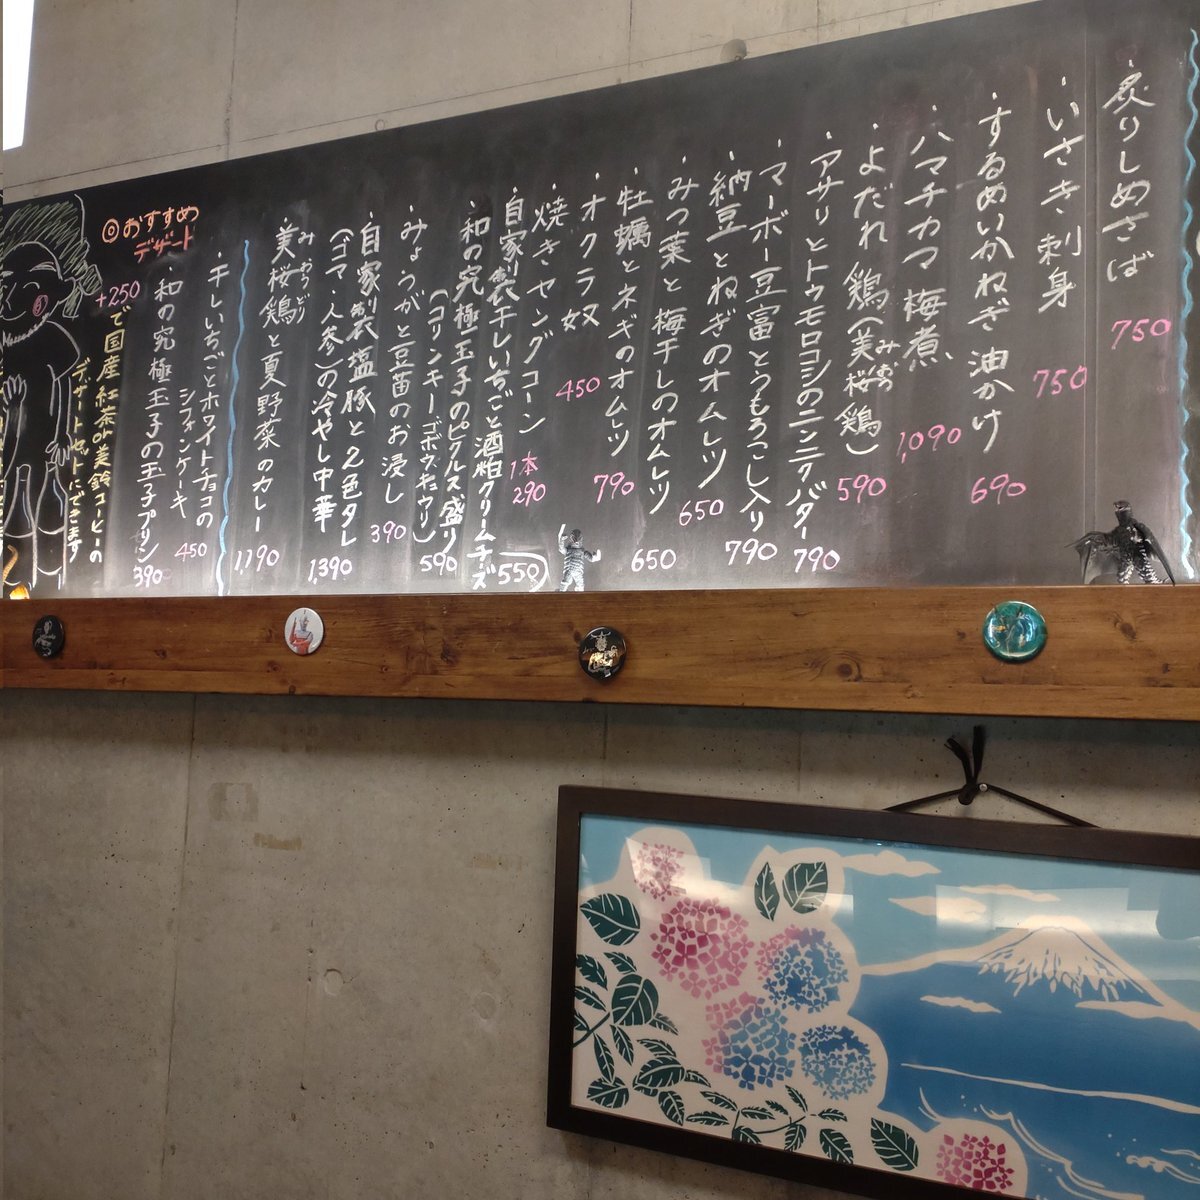 ・炙りしめさば 750
・いさき刺身 750
・するめいかねぎ油かけ 690
・ハマチカマ梅煮 1,090
・よだれ鶏(美桜鶏) 590
みおう
・アサリとトウモロコシのニンニクバター 790
・マーボー豆冨とうもろこし入り 790
・納豆とねぎのオムレツ 650
・みつ葉と梅干しのオムレツ 650
・牡蠣とネギのオムレツ 790
・オクラ奴 450
・焼きヤングコーン 1本 290
・自家製干しいちごと酒粕クリームチーズ 550
・和の究極玉子のピクルス盛り 590
(コリンキーゴボウキュウリ)
・みょうがと豆苗のお浸し 390
・自家製塩豚と2色タレ
(ゴマ・人参)の冷やし中華 1,390
みおうどり
・美桜鶏と夏野菜のカレー 1,190
◎おすすめ
デザート
・干しいちごとホワイトチョコの
シフォンケーキ 450
・和の究極玉子の玉子プリン 390
+250で国産紅茶or美鈴コーヒーの
デザートセットにできます